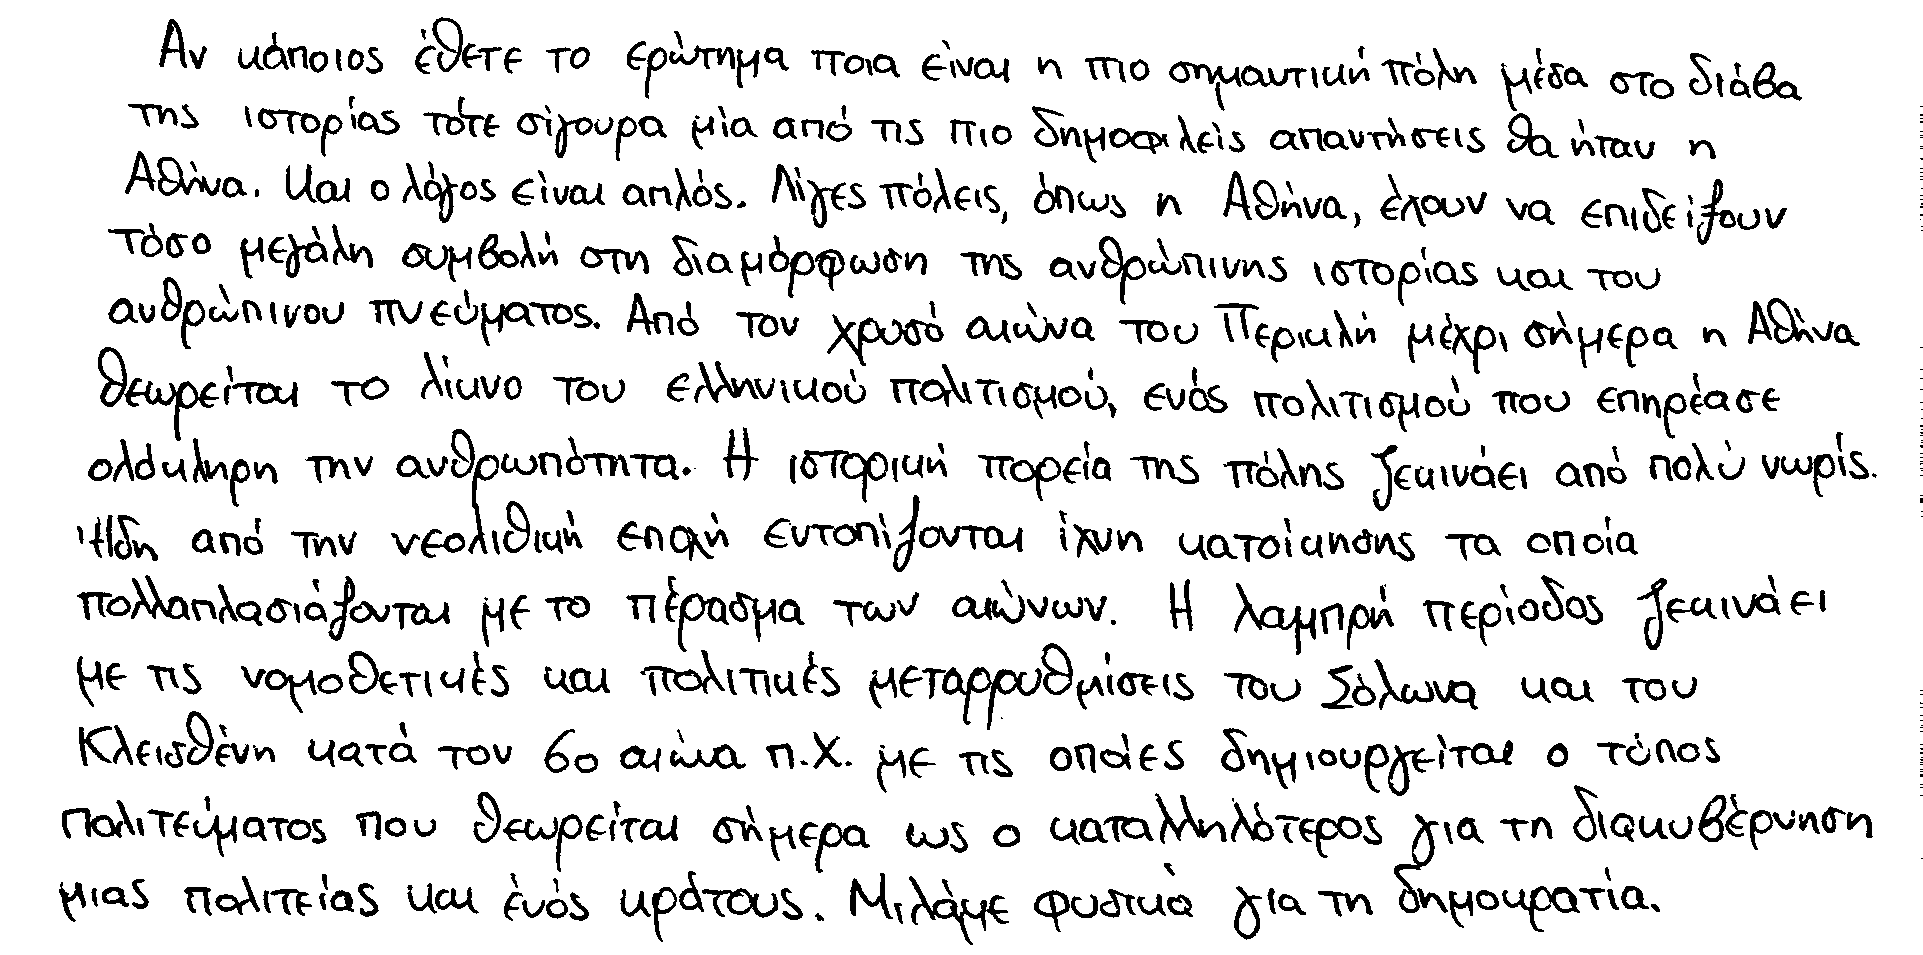 Αν κάποιος έθετε το ερώτημα ποια είναι η πιο σημαντική πόλη μέσα στο διάβα
της ιστορίας τότε σίγουρα μία από τις πιο δημοφιλείς απαντήσεις θα ήταν η
Αθήνα. Και ο λόγος είναι απλός. Λίγες πόλεις, όπως η Αθήνα, έχουν να επιδείξουν
τόσο μεγάλη συμβολή στη διαμόρφωση της ανθρώπινης ιστορίας και του
ανθρώπινου πνεύματος. Από τον χρυσό αιώνα του Περικλή μέχρι σήμερα η Αθήνα
θεωρείται το λίκνο του ελληνικού πολιτισμού, ενός πολιτισμού που επηρέασε
ολόκληρη την ανθρωπότητα. Η ιστορική πορεία της πόλης ξεκινάει από πολύ νωρίς.
Ήδη από την νεολιθική εποχή εντοπίζονται ίχνη κατοίκησης τα οποία
πολλαπλασιάζονται με το πέρασμα των αιώνων. Η λαμπρή περίοδος ξεκινάει
με τις νομοθετικές και πολιτικές μεταρρυθμίσεις του Σόλωνα και του
Κλεισθένη κατά τον 6ο αιώνα π.Χ. με τις οποίες δημιουργείται ο τύπος
πολιτεύματος που θεωρείται σήμερα ως ο καταλληλότερος για τη διακυβέρνηση
μιας πολιτείας και ένός κράτους. Μιλάμε φυσικά για τη δημοκρατία.